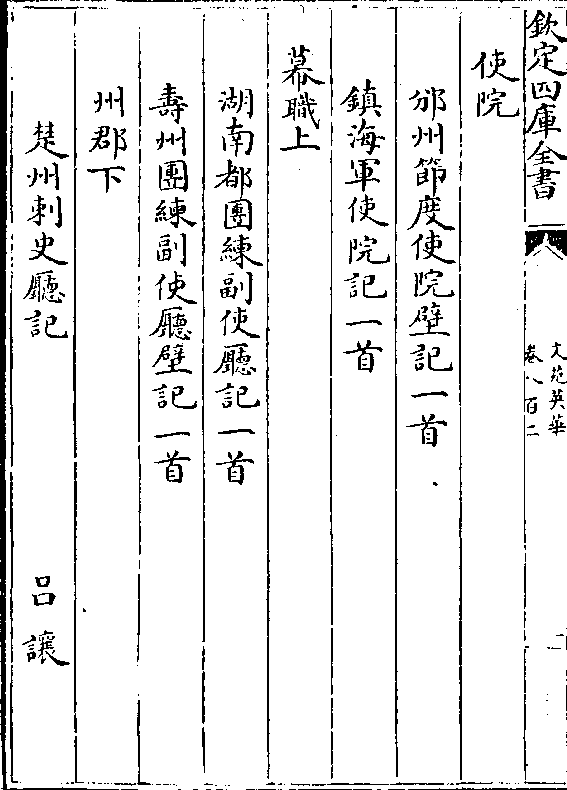 欽定四庫全書
文苑英華
卷八百二
二
使院
邠州節度使院壁記一首
鎮海軍使院記一首
幕職上
湖南都團練副使廳記一首
壽州團練副使廳壁記一首
州郡下
楚州刺史廳記 呂讓